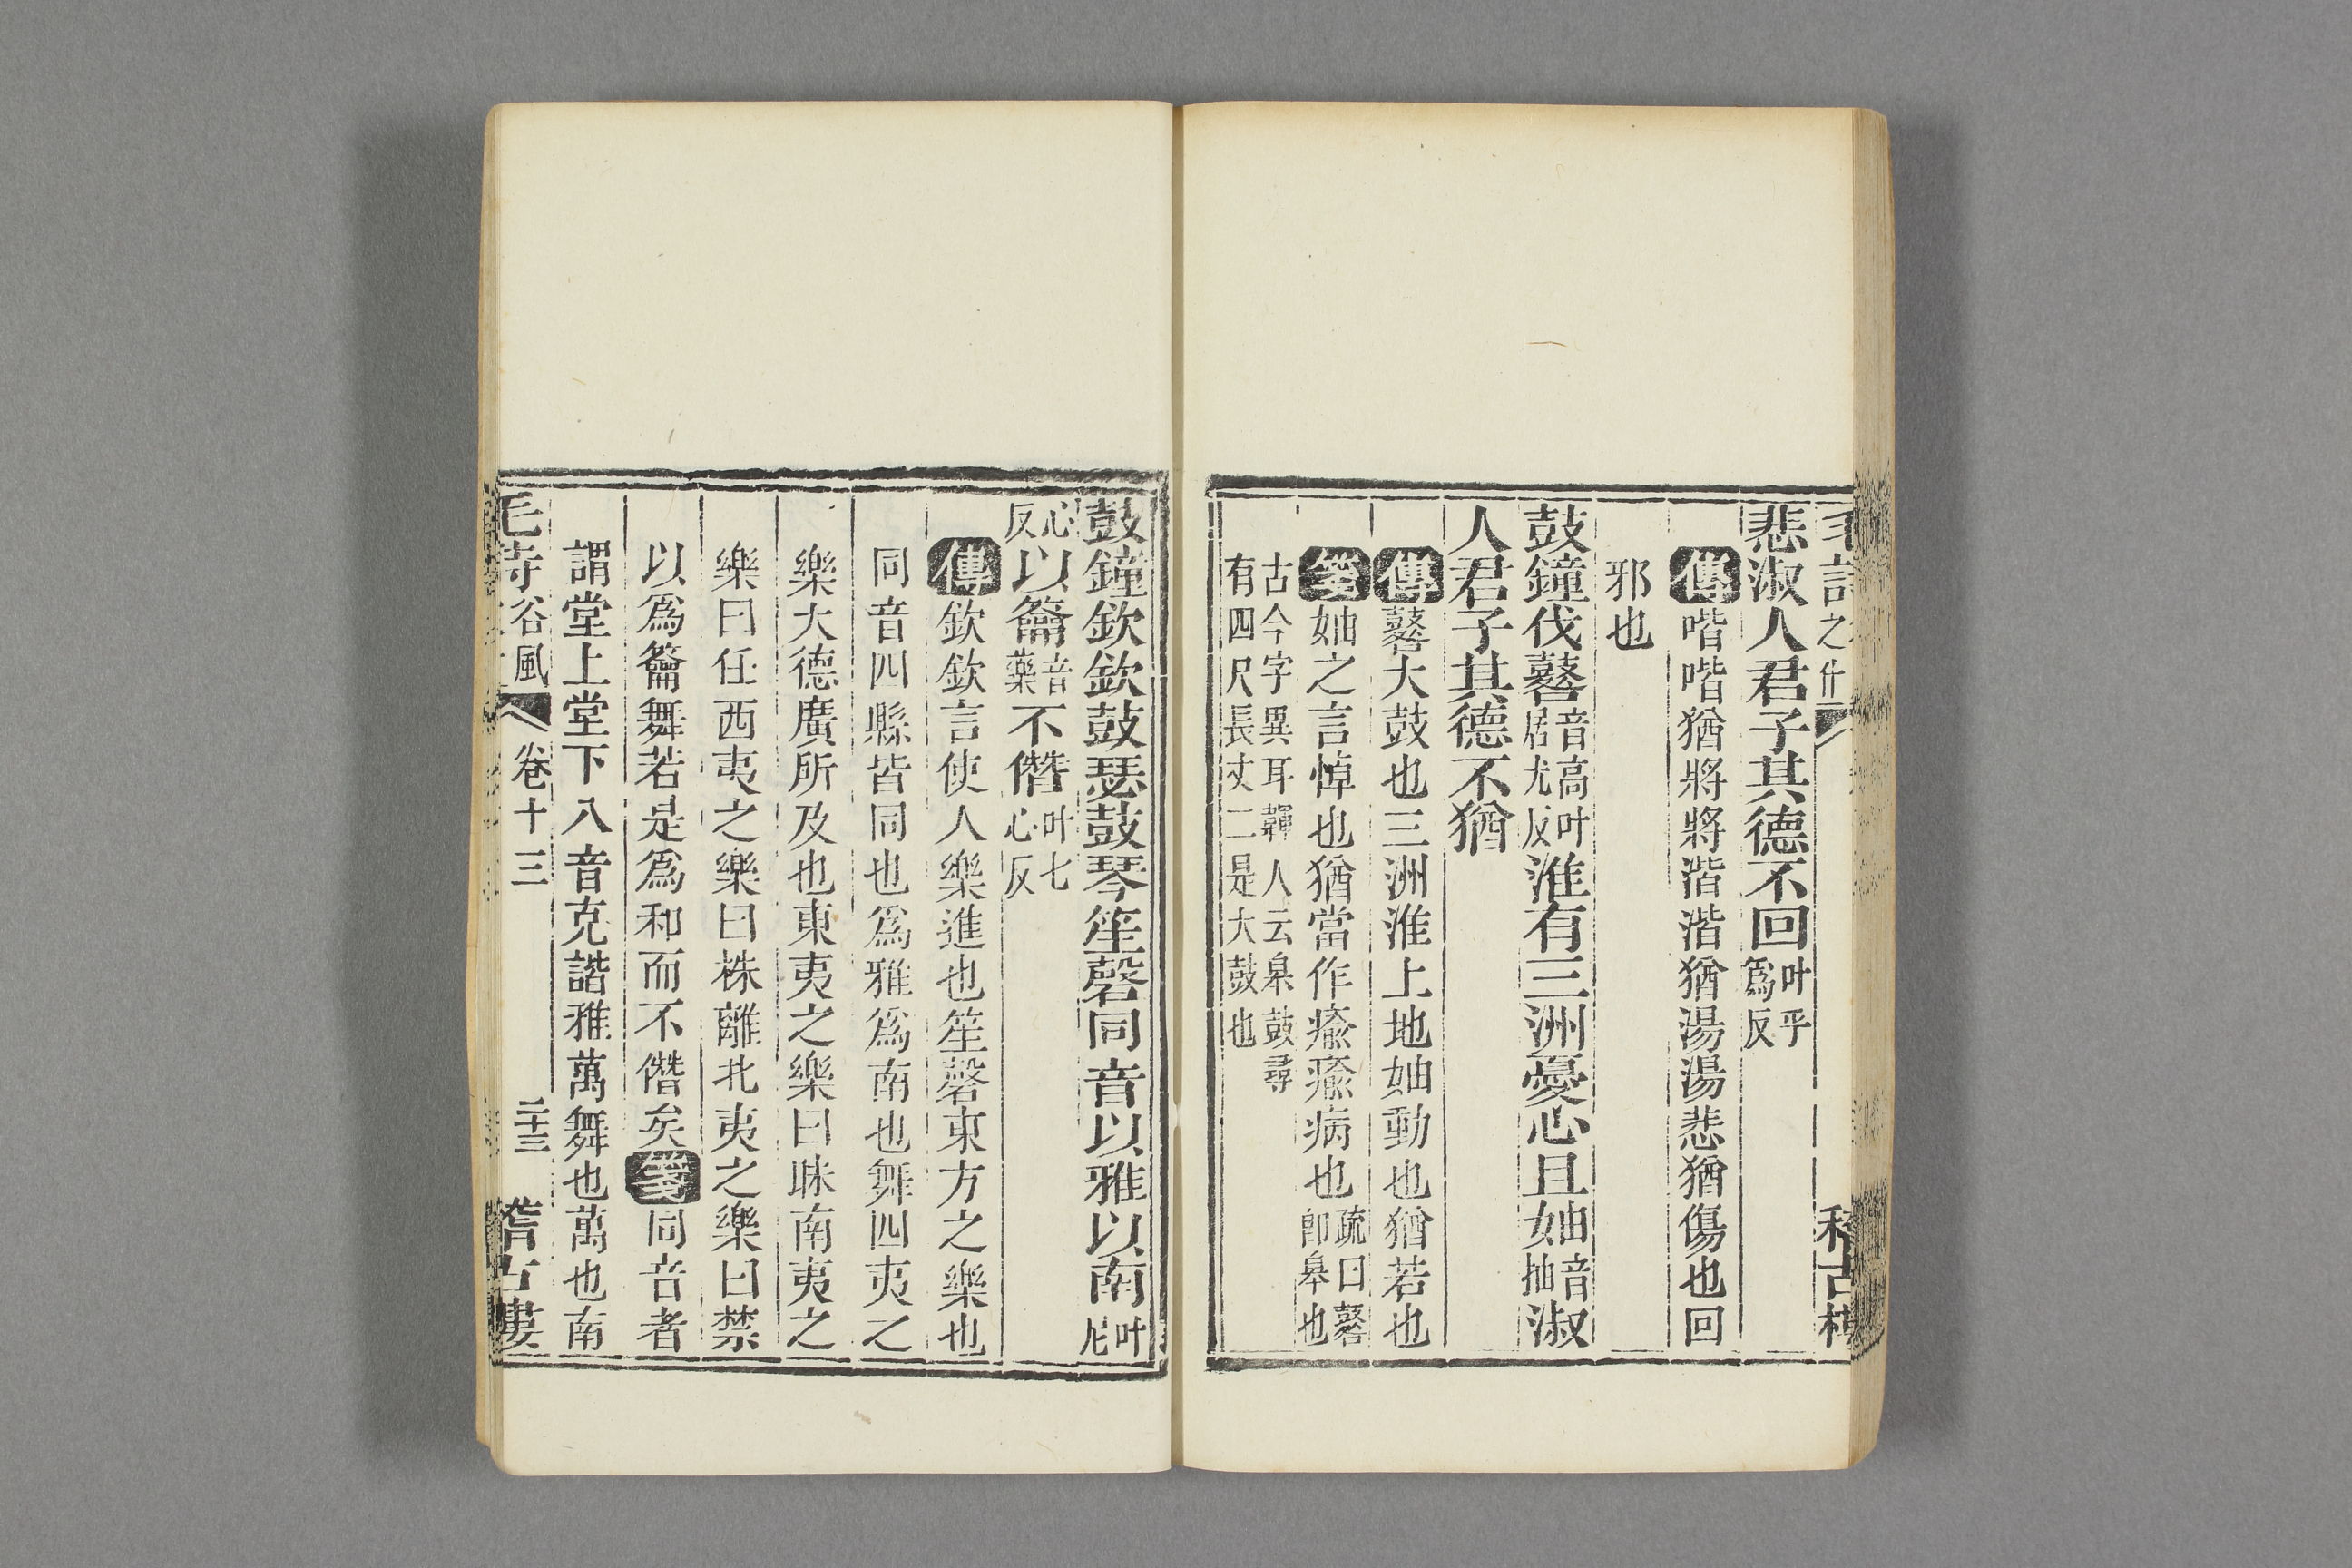 毛詩之什 稽古樓
悲淑人君子其德不回叶乎爲反
傳喈喈猶將將湝湝猶湯湯悲猶傷也回
邪也
鼓鐘伐鼛音高叶居尤反淮有三洲憂心且妯音抽淑
人君子其德不猶
傳鼛大鼓也三洲淮上地妯動也猶若也
箋妯之言悼也猶當作瘉瘉病也疏曰鼛卽皋也
古今字異耳韗人云皋鼓尋有四尺長丈二是大鼓也
鼓鐘欽欽鼓瑟鼓琴笙磬同音以雅以南叶尼
心反以籥音藥不僭叶七心反
傳欽欽言使人樂進也笙磬東方之樂也
同音四縣皆同也爲雅爲南也舞四夷之
樂大德廣所及也東夷之樂曰昧南夷之
樂曰任西夷之樂曰株離北夷之樂曰禁
以爲籥舞若是爲和而不僭矣箋同音者
謂堂上堂下八音克諧雅萬舞也萬也南
毛詩谷風 卷十三 二十三 稽古樓